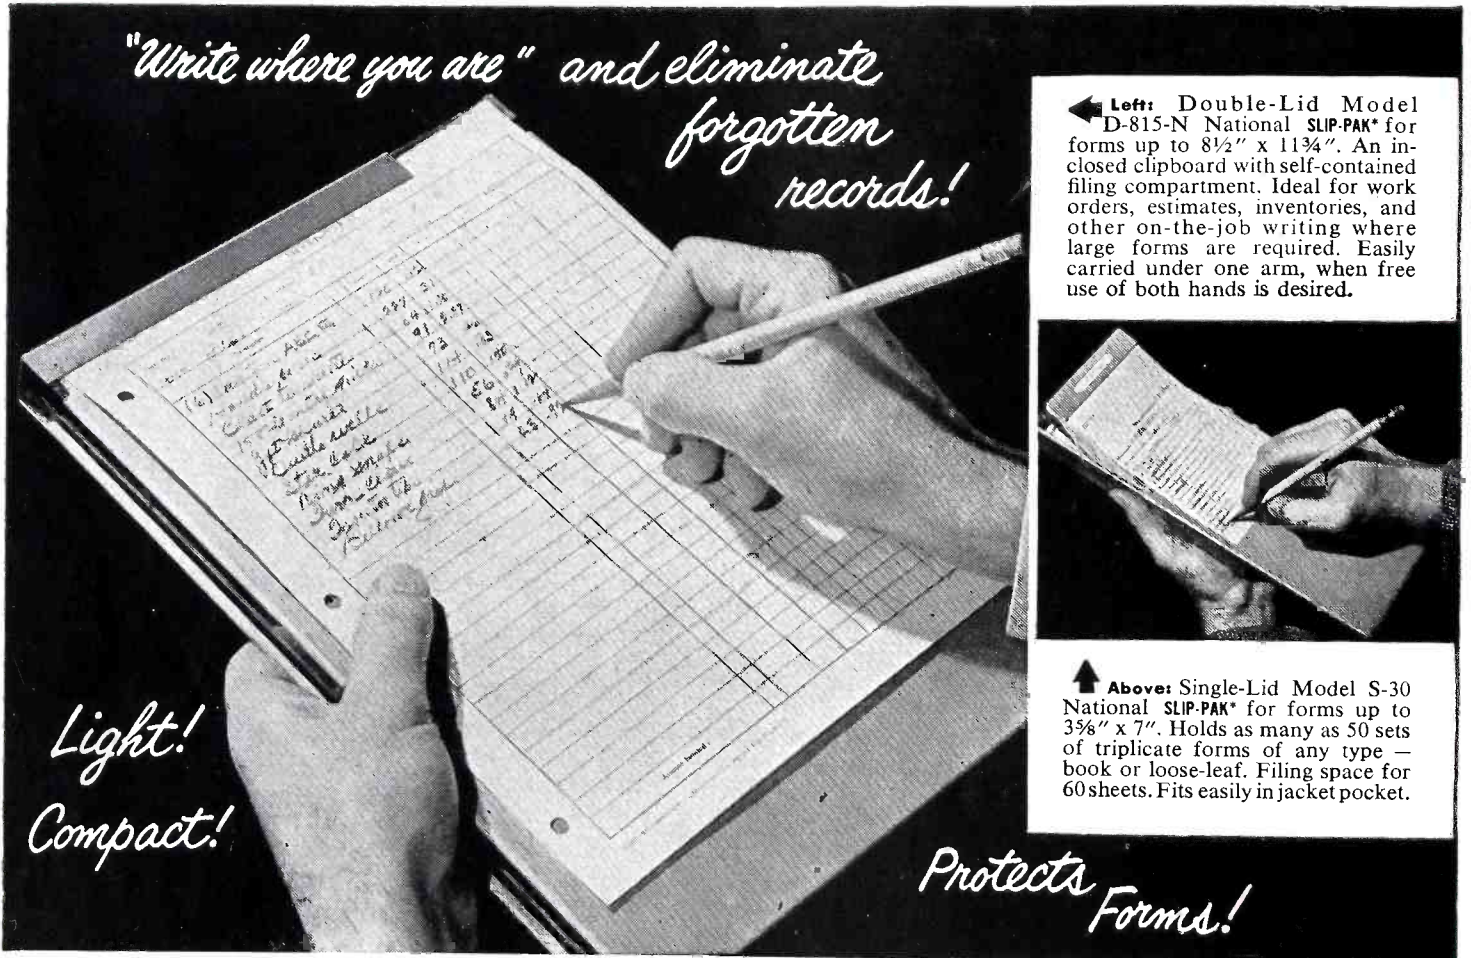 "Write where you are" and eliminate
forgotten
records!
Left: Double-Lid Model
D-815-N National SLIP-PAK* for
forms up to 8½" x 11¾". An in-
closed clipboard with self-contained
filing compartment. Ideal for work
orders, estimates, inventories, and
other on-the-job writing where
large forms are required. Easily
carried under one arm, when free
use of both hands is desired.
Above: Single-Lid Model S-30
National SLIP-PAK* for forms up to
3⅝" x 7". Holds as many as 50 sets
of triplicate forms of any type —
book or loose-leaf. Filing space for
60 sheets. Fits easily in jacket pocket.
Light!
Compact!
Protects
Forms!